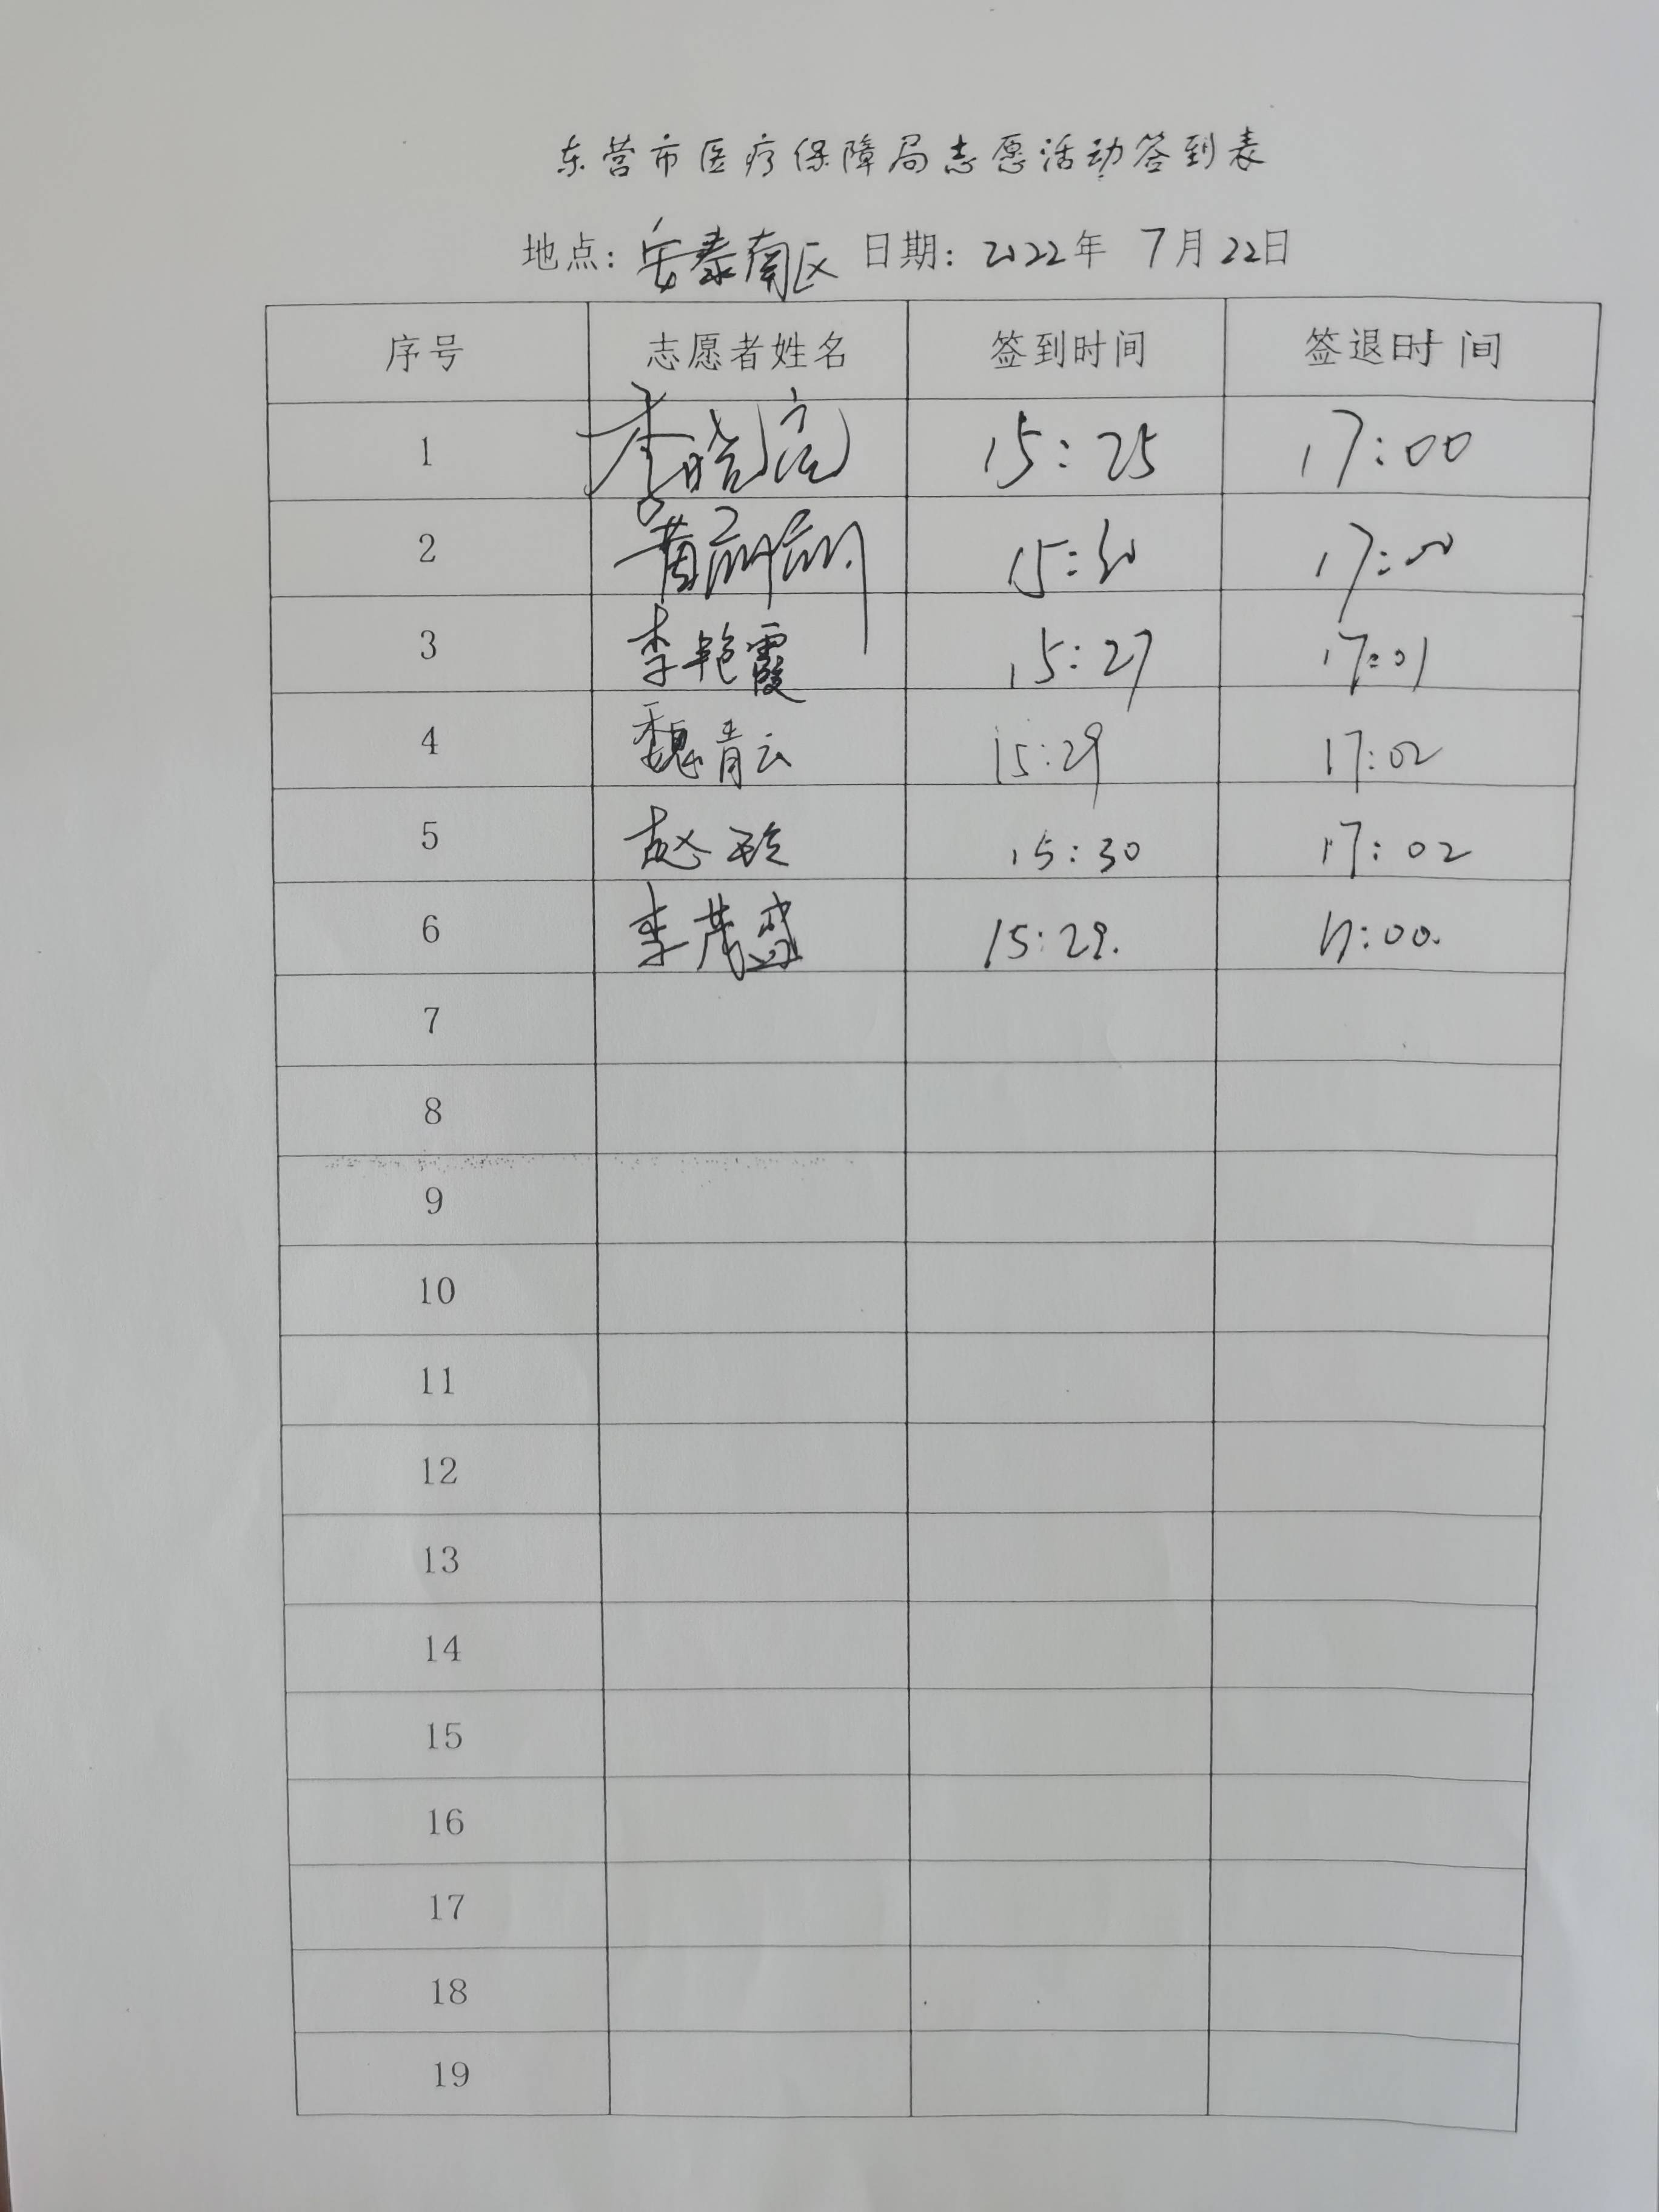 东营市医疗保障局志愿活动签到表
地点：安泰南区 日期：2022年 7月22日
序号 志愿者姓名 签到时间 签退时间
1 李晓亮 15:25 17:00
2 黄丽丽 15:30 17:00
3 李艳霞 15:27 17:01
4 魏青云 15:29 17:02
5 赵玲 15:30 17:02
6 李茂盛 15:29. 17:00.
7
8
9
10
11
12
13
14
15
16
17
18
19